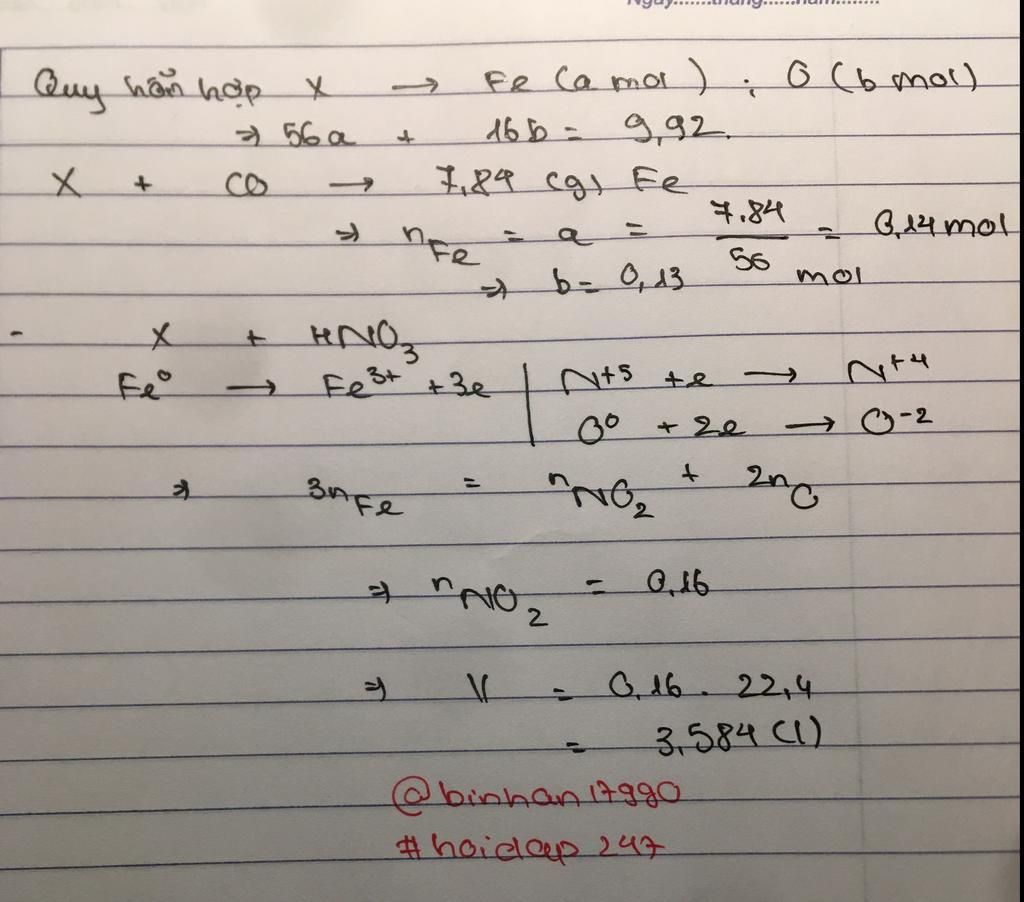 Ngày.......tháng......năm........
Quy hỗn hợp X → Fe (a mol) ; O (b mol)
⇒ 56a + 16b = 9,92.
X + CO → 7,84 (g) Fe
⇒ nFe = a = 7.84/56 = 0,14 mol
⇒ b = 0,13 mol
- X + HNO₃
Fe⁰ → Fe³⁺ + 3e | N⁺⁵ + e → N⁺⁴
O⁰ + 2e → O⁻²
⇒ 3nFe = nNO₂ + 2nO
⇒ nNO₂ = 0,16
⇒ V = 0,16 . 22,4
= 3,584 (l)
@binhan17990
#hoidap247